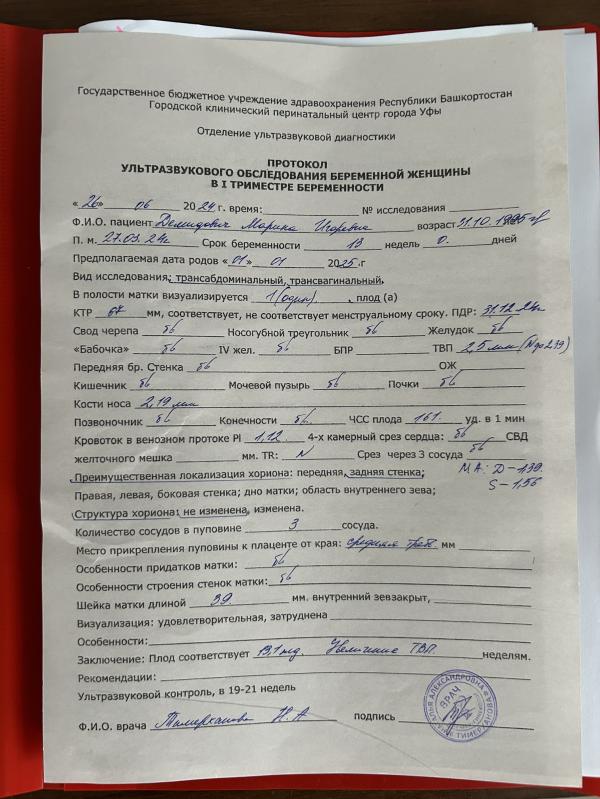 Государственное бюджетное учреждение здравоохранения Республики Башкортостан
Городской клинический перинатальный центр города Уфы
Отделение ультразвуковой диагностики
ПРОТОКОЛ
УЛЬТРАЗВУКОВОГО ОБСЛЕДОВАНИЯ БЕРЕМЕННОЙ ЖЕНЩИНЫ
В I ТРИМЕСТРЕ БЕРЕМЕННОСТИ
« 26» 06 2024г. время: № исследования
Ф.И.О. пациент Демидович Марина Игоревна возраст 31.10.
П. м. 27.03.24г Срок беременности 13 недель 0. дней
Предполагаемая дата родов « 01» 01 2025.г
Вид исследования: трансабдоминальный, трансвагинальный.
В полости матки визуализируется 1 (один) плод (а)
КТР 67 мм, соответствует, не соответствует менструальному сроку. ПДР: 31.12.24г
Свод черепа бб Носогубной треугольник бб Желудок бб
«Бабочка» бб IV жел. бб БПР ТВП 2,5 мм (N до 2,39)
Передняя бр. Стенка бб ОЖ
Кишечник бб Мочевой пузырь бб Почки бб
Кости носа 2,19 мм
Позвоночник бб Конечности бб. ЧСС плода 161. уд. в 1 мин
Кровоток в венозном протоке PI 1,12. 4-х камерный срез сердца: бб СВД
желточного мешка мм. TR: N Срез через 3 сосуда бб
Преимущественная локализация хориона: передняя, задняя стенка; МА: D – 1,39.
Правая, левая, боковая стенка; дно матки; область внутреннего зева; S – 1,56
Структура хориона: не изменена, изменена.
Количество сосудов в пуповине 3 сосуда.
Место прикрепления пуповины к плаценте от края: средняя трет мм
Особенности придатков матки: бб
Особенности строения стенок матки: бб
Шейка матки длиной 39 мм. внутренний зевзакрыт,
Визуализация: удовлетворительная, затруднена
Особенности:
Заключение: Плод соответствует 13,1 нед. Увеличение ТВП. неделям.
Рекомендации:
Ультразвуковой контроль, в 19-21 недель
Ф.И.О. врача Тимерханова Н. А подпись
ВРАЧ